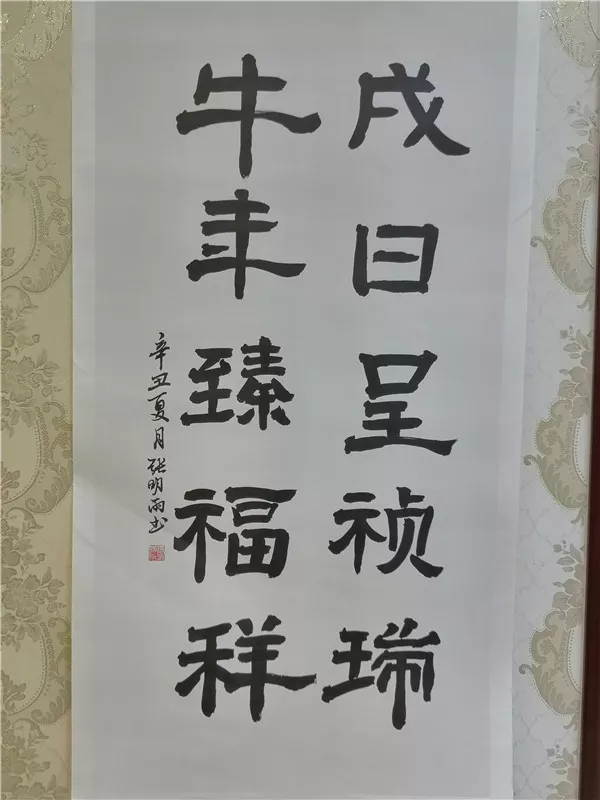 戌日呈祯瑞
牛年臻福祥
辛丑夏月张明雨书